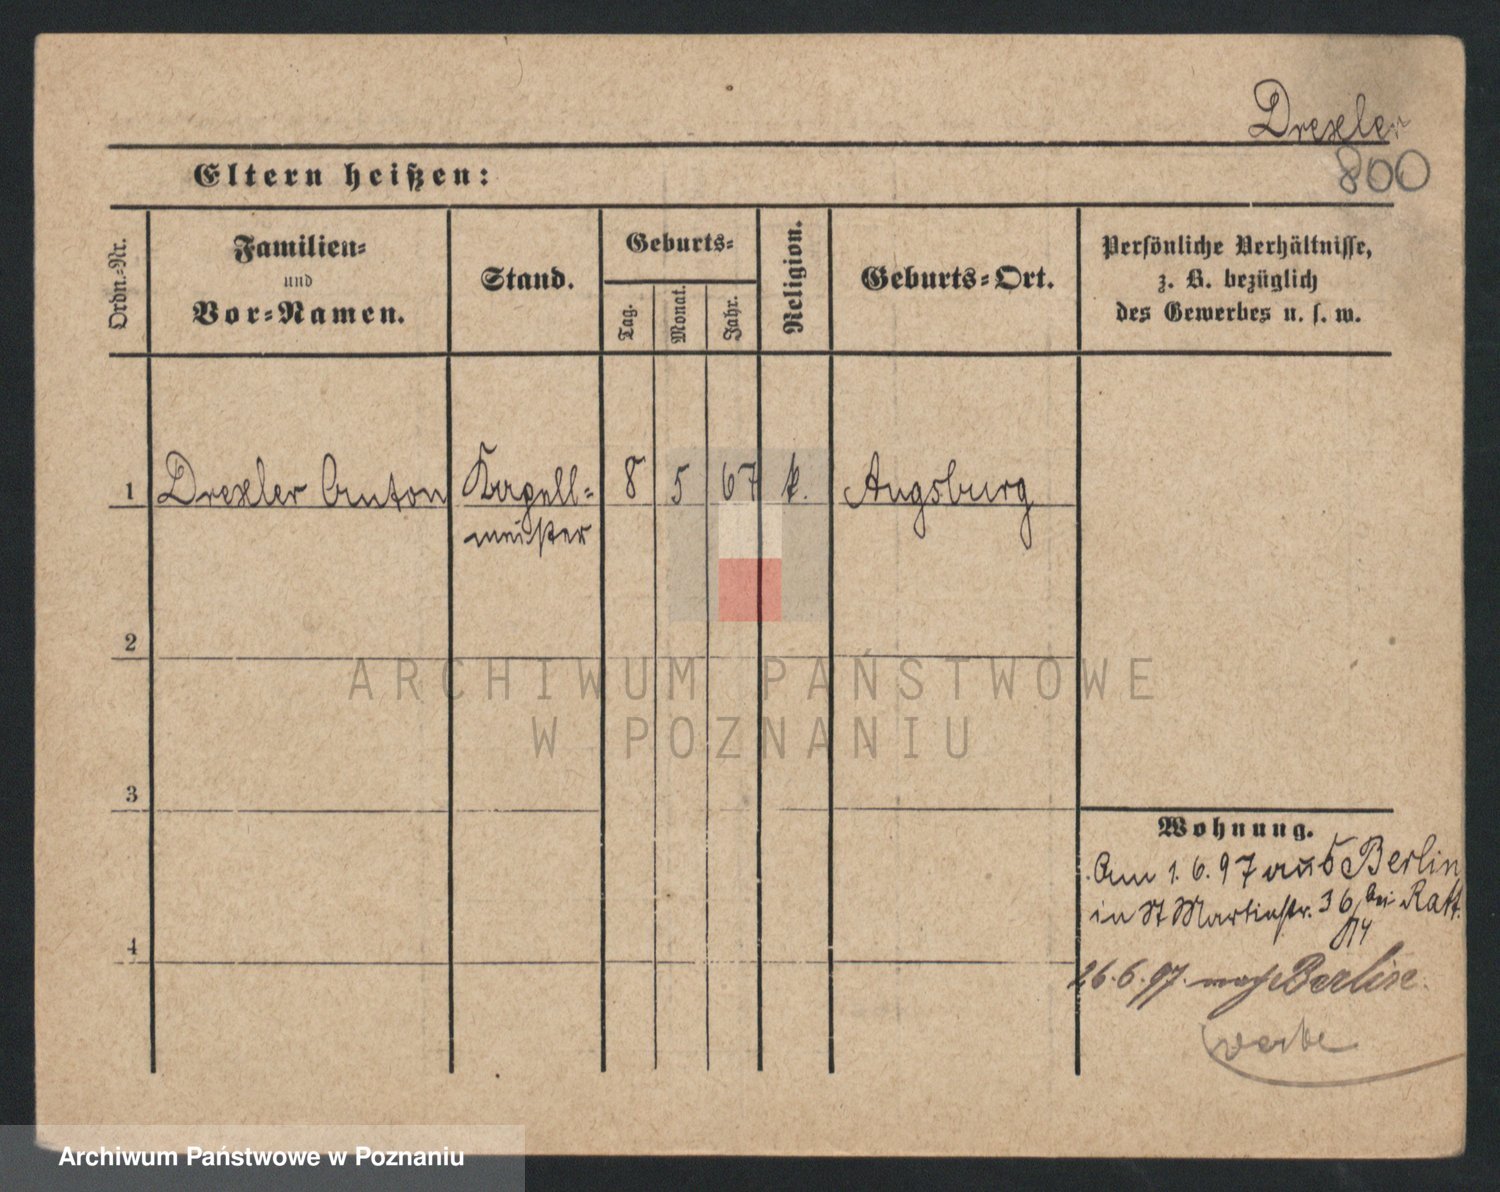 Drexler
800
Eltern heißen:
Ordn.-Nr.
Familien-
und
Vor-Namen.
Stand.
Geburts-
Tag.
Monat.
Jahr.
Religion.
Geburts-Ort.
Persönliche Verhältnisse,
z. B. bezüglich
des Gewerbes u. s. w.
1 Drexler Anton Kapell- 8 5 67 k. Augsburg
meister
2
3
4
Wohnung.
Am 1.6.97 aus Berlin
in St Martinstr. 36 bei Ratt.
26.6.97. nach Berlin.
ARCHIWUM PAŃSTWOWE
W POZNANIU
Archiwum Państwowe w Poznaniu